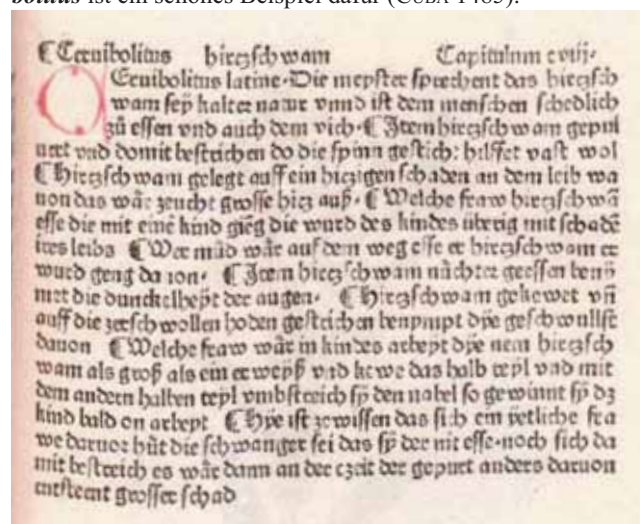 bolitus ist ein schönes Beispiel dafür (CUBA 1485):
¶ Ceruibolitus hirczschwam Capitulum cviij.
CEruibolitus latine. Die meyster sprechent das hirczsch
wam sey kalter natur vnnd ist dem menschen schedlich
zů essen vnd auch dem vich. ¶ Item hirczschwam gepul
uert vnd domit bestrichen do die spinn gestich: hilffet vast wol
¶ Hirczschwam gelegt auff ein hiczigen schaden an dem leib wa
uon das wår zeucht grosse hicz auß. ¶ Welche fraw hirczschwā
esse die mit einē kind gieg die wurd des kindes übrig mit schadē
ires leibs ¶ Wer můd wår auf dem weg esse er hirczschwam er
wurd geng da von. ¶ Item hirczschwam nůchter geessen benÿ
met die dunckelheyt der augen. ¶ Hirczschwam gekewet vñ
auff die zerschwollen hoden gestrichen benympt dÿe geschwullst
dauon ¶ Welche fraw wår in kindes arbeyt dÿe nem hirczsch
wam als groß als ein erweyß vnd kewe das halb teyl vnd mit
dem andern halben teyl vmbstreich sÿ den nabel so gewinnt sÿ dz
kind bald on arbeyt ¶ Hÿe ist zewissen das sich ein yetliche fra
we daruor hůt die schwanger sei das sÿ der nit esse. noch sich da
mit bestreich es wår dann an der czeit der gepurt anders daruon
entsteent grosser schad